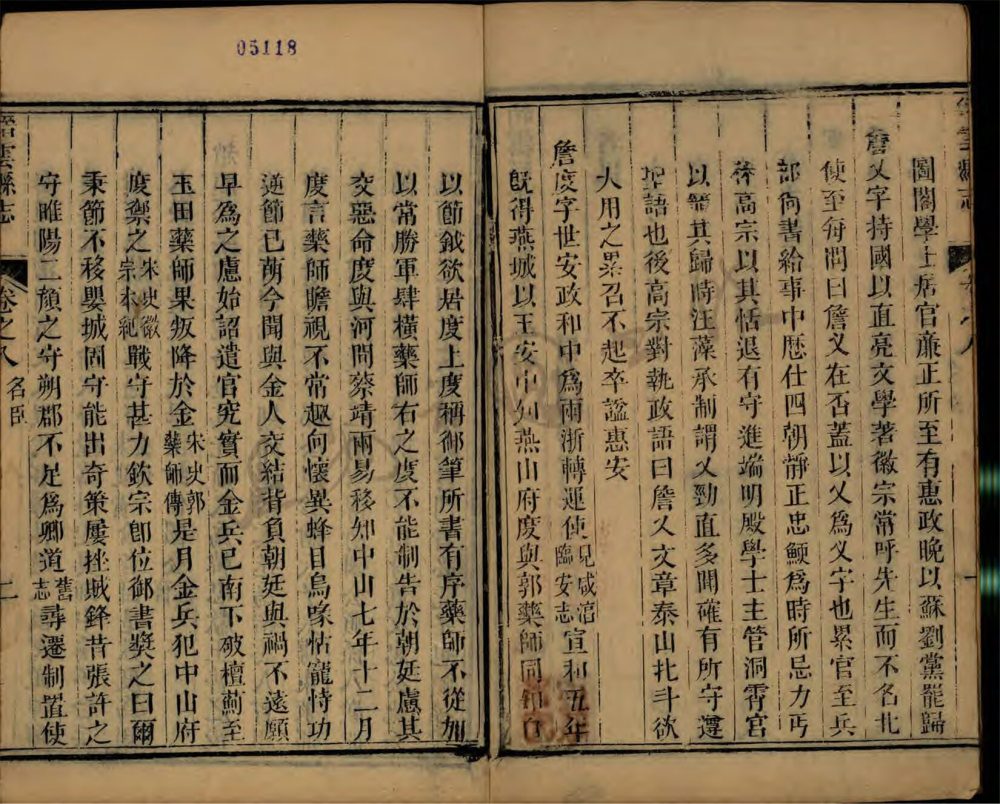 圖閣學士居官廉正所至有惠政晚以蘇劉黨罷歸
詹乂字持國以直亮文學著徽宗常呼先生而不名北
使至每問曰詹乂在否蓋以乂爲父字也累官至兵
部尚書給事中歷仕四朝靜正忠鯁爲時所忌力丐
祠高宗以其恬退有守進端明殿學士主管洞霄宮
以 其歸時汪藻承制謂乂勁直多聞確有所守遵
語也後高宗對執政語曰詹乂文章泰山北斗欲
大用之累召不起卒諡惠安
詹度字世安政和中爲兩浙轉運使見咸淳臨安志宣和五年
旣得燕城以王安中知燕山府度與郭藥師同知自
以節鉞欲居度上度稱御筆所書有序藥師不從加
以常勝軍肆橫藥師右之度不能制告於朝廷慮其
交惡命度與河間蔡靖兩易移知中山七年十二月
度言藥師瞻視不常趣向懷異蜂目烏喙怙寵恃功
逆節已萌今聞與金人交結背負朝廷與禍不遠願
早爲之慮始詔遣官究實而金兵已南下破檀薊至
玉田藥師果叛降於金宋史郭藥師傳是月金兵犯中山府
度禦之宋史徽宗本紀戰守甚力欽宗卽位御書獎之曰爾
秉節不移嬰城固守能出奇策屢挫賊鋒昔張許之
守睢陽二顏之守朔郡不足爲卿道舊志尋遷制置使
縉雲縣志
卷之八
名臣
05118